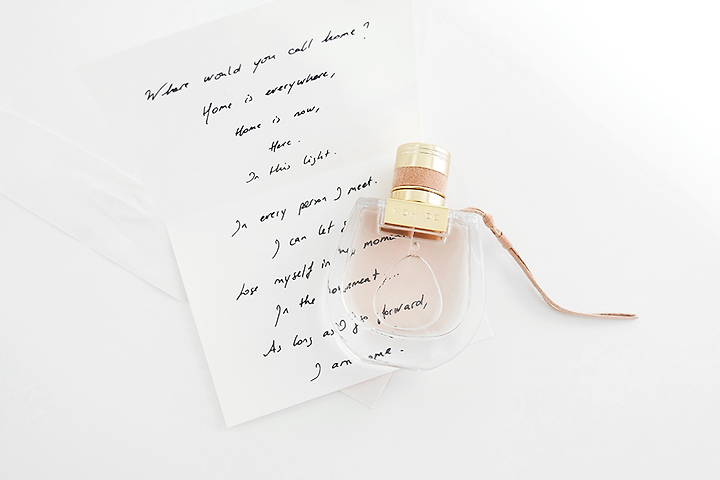 Where would you call home?
Home is everywhere,
Home is now,
Here.
In this light.
In every person I meet.
I can let
Lose myself in
In the
As long as I go forward,
I am
NOMADE